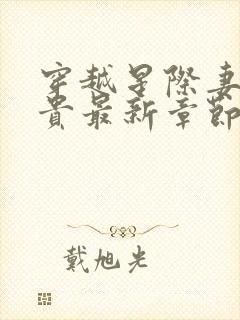 穿越星际妻
贵最新章節
戴旭光